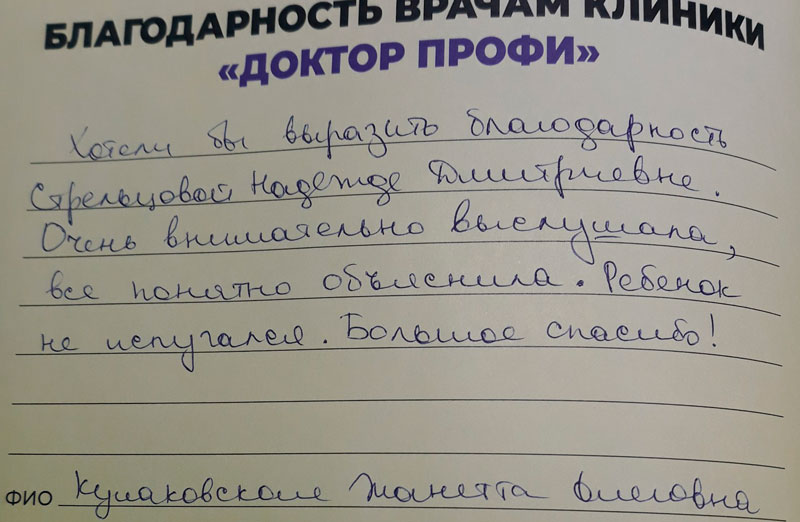 БЛАГОДАРНОСТЬ ВРАЧАМ КЛИНИКИ
«ДОКТОР ПРОФИ»
Хотели бы выразить благодарность
Стрельцовой Надежде Дмитриевне.
Очень внимательно выслушала,
все понятно объяснила. Ребенок
не испугался. Большое спасибо!
ФИО Кулаковская Жанетта Олеговна